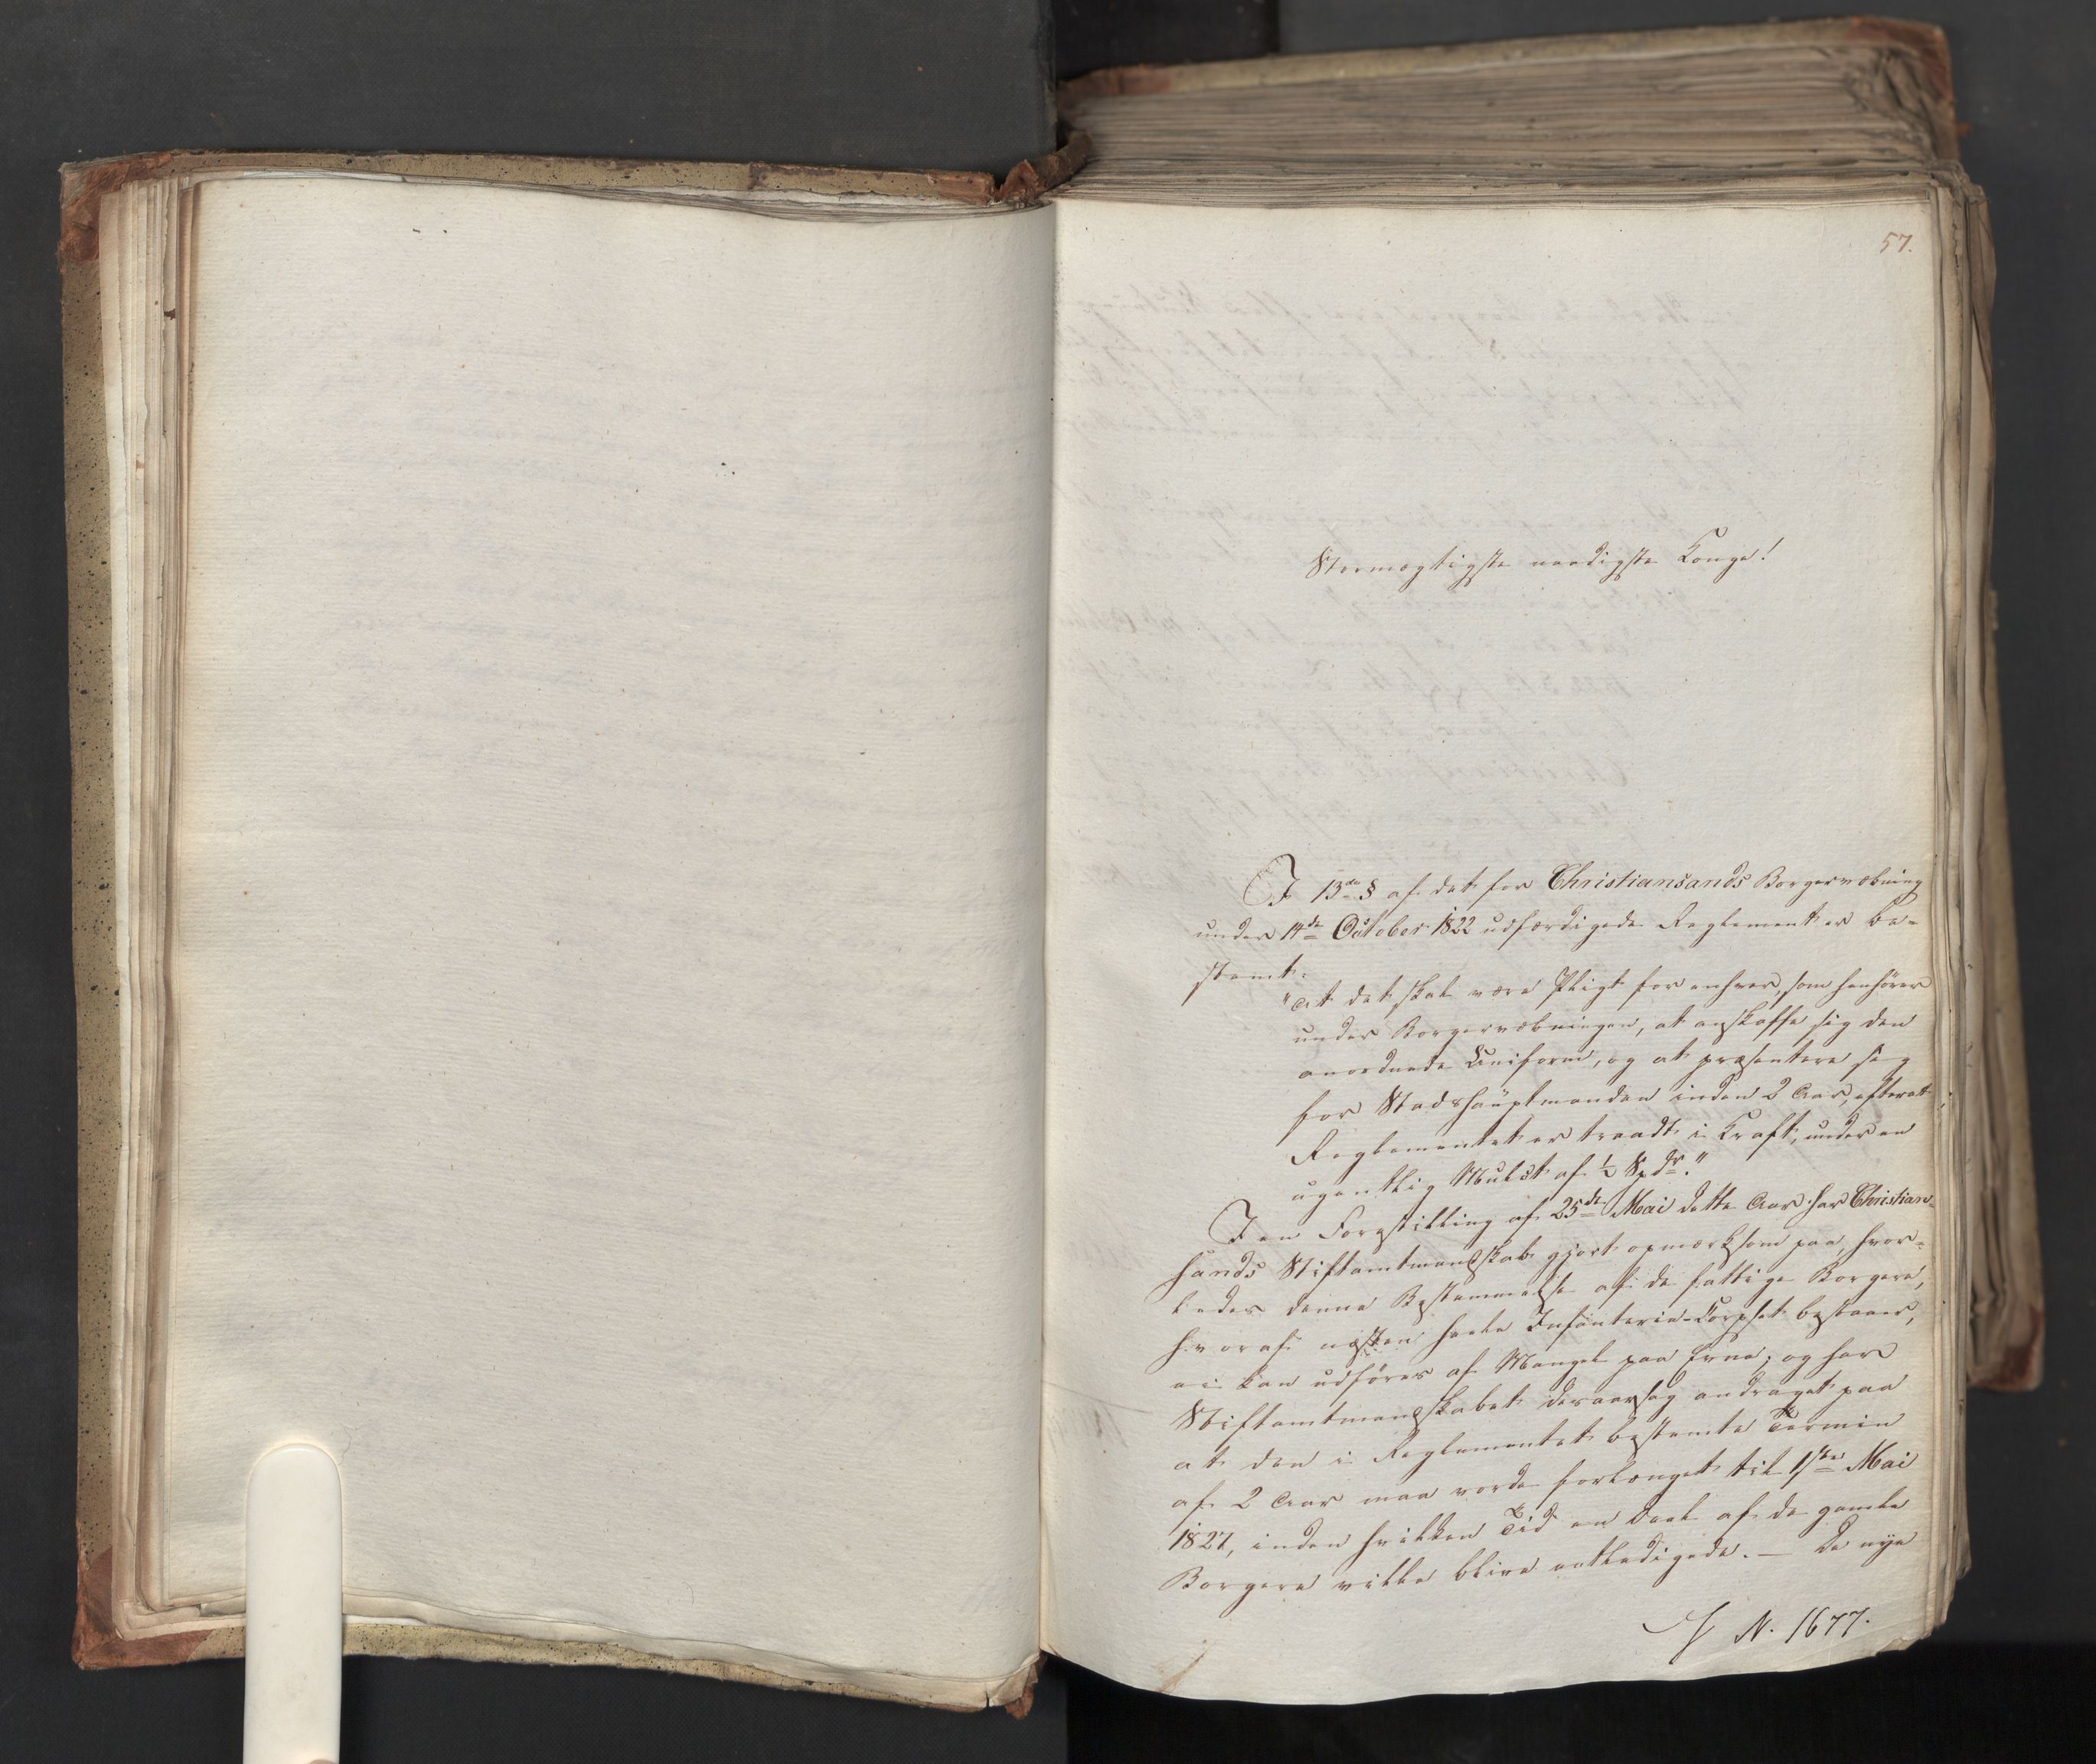 57.
Stormægtigste naadigste Konge!
I 13de § af det for Christiansands Borgervæbning
under 14de October 1822 udfærdigede Reglement er be-
stemt:
"at det skal være Pligt for enhver, som henhører
under Borgervæbningen, at anskaffe sig den
anordnede Uniform, og at præsentere sig
for Stadshauptmanden inden 2 Aar, efterat
Reglementet er traadt i Kraft, under en
ugentlig Mulct af ½ Spdr."
I en Forestilling af 25de Mai dette Aar har Christian-
sands Stiftamtmandskab gjort opmærksom paa, hvor-
ledes denne Bestemmelse af de fattige Borgere,
hvoraf næsten hele Infanterie-Corpset bestaaer,
ei kan udføres af Mangel paa Evne; og har
Stiftamtmandskabet desaarsag andraget paa
at den i Reglementet bestemte Termin
af 2 Aar maa vorde forlænget til 1ste Mai
1827, inden hvilken Tid en Deel af de gamle
Borgere ville blive entledigede. — De nye
J N. 1677.